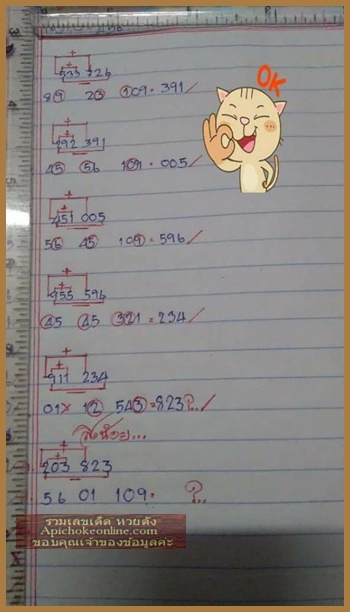 533 726
89 23 109 = 391 /
OK
292 391
45 56 109 = 005 /
451 005
56 45 109 = 596 /
955 596
45 45 321 = 234 /
911 234
01x 12 543 = 823 ?.. /
203 823
56 01 109 = ?..
รวมเลขเด็ด หวยดัง
Apichokeonline.com
ขอบคุณเจ้าของข้อมูลค่ะ